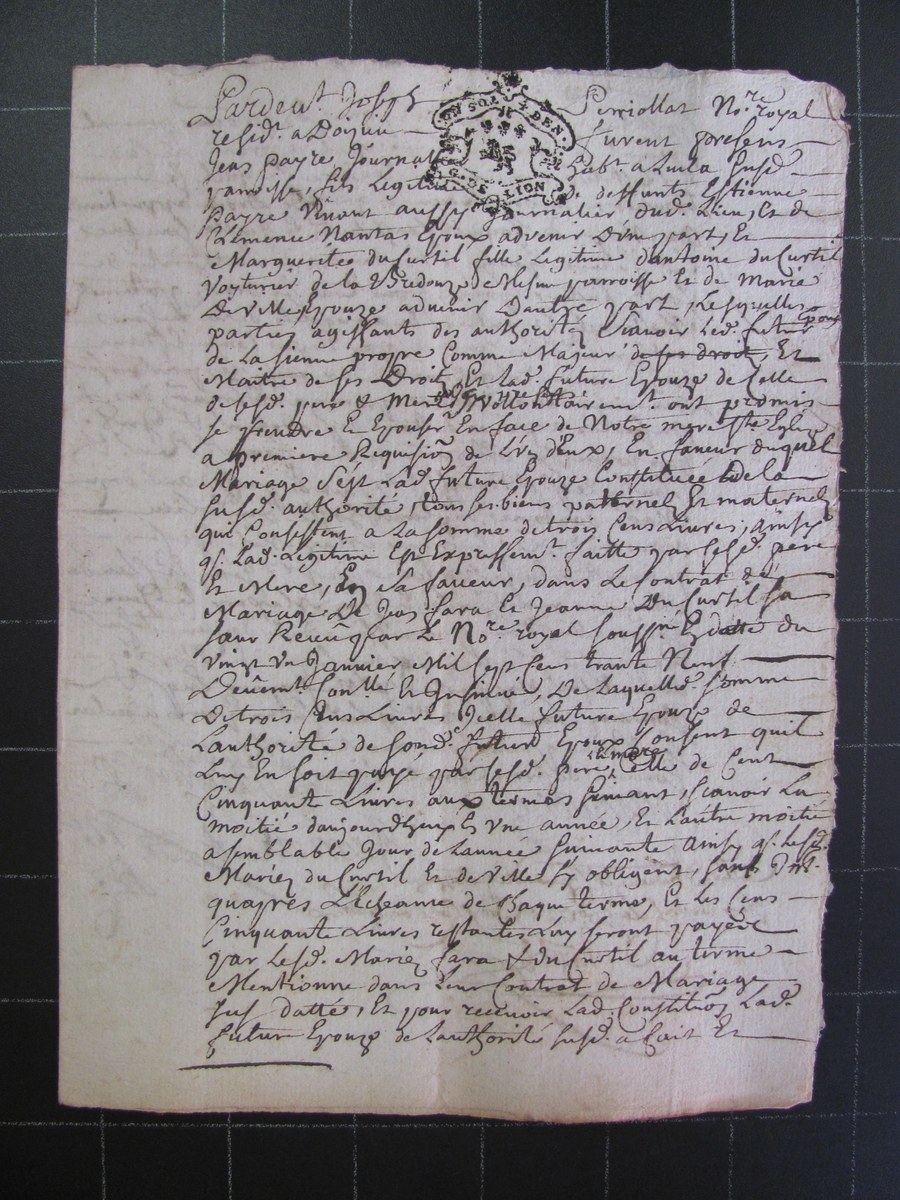 Pardevt. Joseph Perriollat Nore. royal
UN SOL 4 DEN.
G. DE LION
residt. a Doizieu furent presens
Jean payre Journal habt. a Luila susd.
parroisse, fils Legitime de deffunts Estienne
payre vivant aussy Journalier dud. Lieu, Et de
Clemence Nantas Epoux advenir D'une part, Et
Margueritte du Curtil fille Legitime d'antoine du Curtil
voyturier de la parroisse Et de Marie
De ville, Epouze advenir D'autre part, Lesquelles
parties agissants des authorités scavoir Led. futur Epoux
de La sienne propre Comme Majeur de ses droits, Et
Maitre de ses Droits, Et Lad. future Epouze de Celle
de sesd. pere & Mere vollontairemt. ont promis
se prendre Et Epouser En face de Notre mere ste. Eglize
a premiere Requision. de L'un d'Eux, En faveur duquel
Mariage s'est Lad. future Epouze Constituée de la
susd. authorité tous ses biens paternel Et maternel
qui Consistent a La somme de trois Cens Livres, ainsy
q. Lad. Legitime Est Expressemt. faitte par sesd. pere
Et Mere, En sa faveur, dans Le Contrat de
Mariage De Jean fara Et Jeanne Du Curtil sa
sœur Receu par Le Nore. royal soussné. En datte du
vingt un Janvier Mil sept Cens trante Neuf
Deuemt. Conllé Et Insinué, De Laquelle somme
De trois Cens Livres Icelle future Epouze de
L'authorité de sond. futur Epoux Consent qu'il
Luy En soit payé par sesd. pere et mere Celle de Cent
Cinquante Livres aux termes suivant, scavoir La
moitié d'aujourd'huy En une année, Et L'autre moitié
a semblable Jour de L'année suivante ainsy q. Lesd.
Mariez du Curtil Et de ville s'y obligent, sans Int.
qu'apres L'Echeance de Chaque terme, Et Les Cens
Cinquante Livres restantes Luy seront payée
par Lesd. Mariez fara & du Curtil au terme
Mentionné dans Leur Contrat de Mariage
sus datté, Et pour recevoir Lad. Constition. Lad.
future Epouze de L'authorité susd. a fait Et